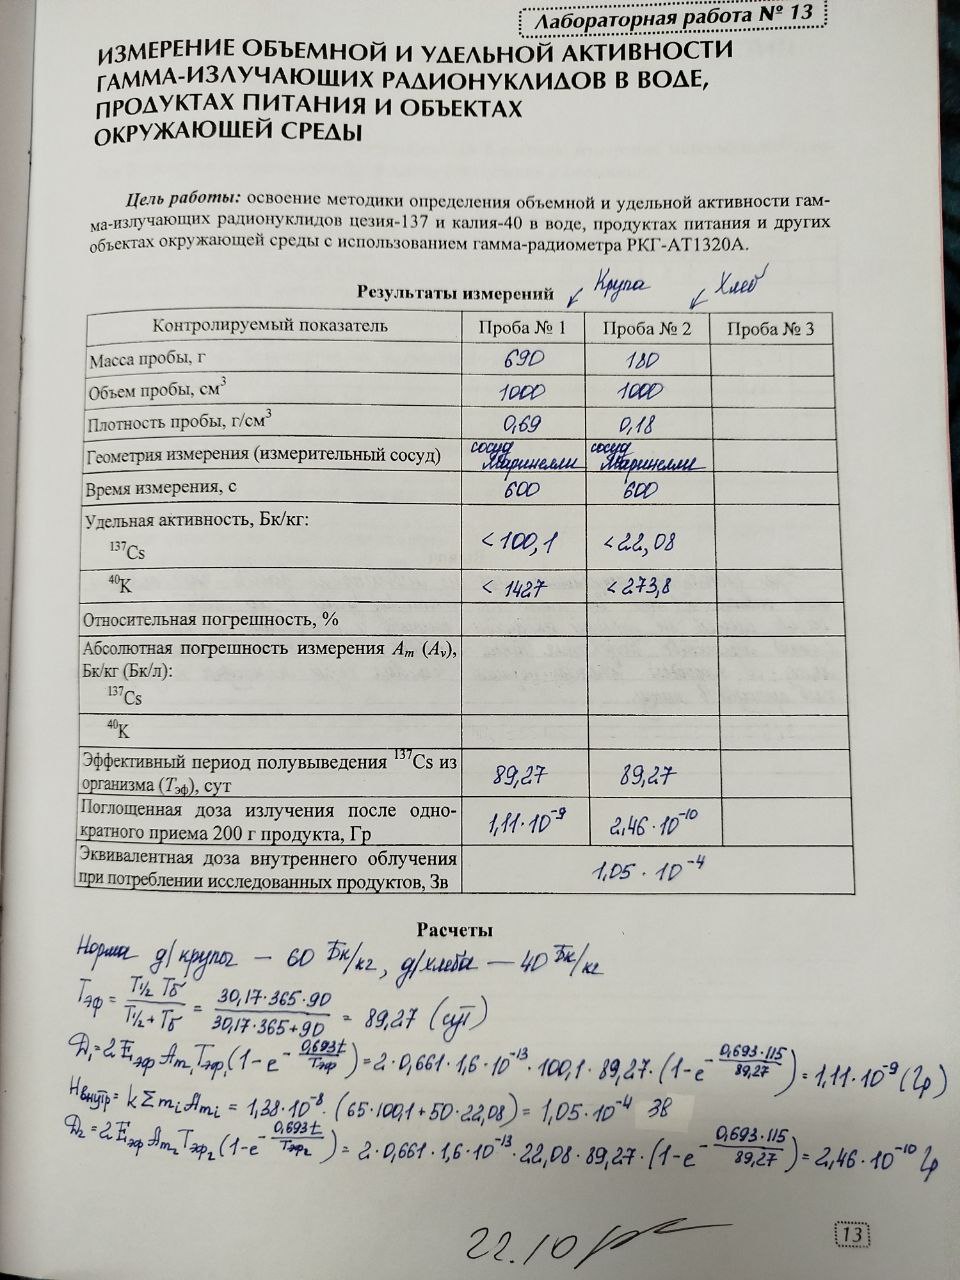 Лабораторная работа № 13
ИЗМЕРЕНИЕ ОБЪЕМНОЙ И УДЕЛЬНОЙ АКТИВНОСТИ
ГАММА-ИЗЛУЧАЮЩИХ РАДИОНУКЛИДОВ В ВОДЕ,
ПРОДУКТАХ ПИТАНИЯ И ОБЪЕКТАХ
ОКРУЖАЮЩЕЙ СРЕДЫ
Цель работы: освоение методики определения объемной и удельной активности гам-
ма-излучающих радионуклидов цезия-137 и калия-40 в воде, продуктах питания и других
объектах окружающей среды с использованием гамма-радиометра РКГ-АТ1320А.
Результаты измерений Крупа Хлеб
Контролируемый показатель Проба № 1 Проба № 2 Проба № 3
Масса пробы, г 690 180
Объем пробы, см³ 1000 1000
Плотность пробы, г/см³ 0,69 0,18
Геометрия измерения (измерительный сосуд) сосуд Маринелли сосуд Маринелли
Время измерения, с 600 600
Удельная активность, Бк/кг:
¹³⁷Cs < 100,1 < 22,08
⁴⁰K < 1427 < 273,8
Относительная погрешность, %
Абсолютная погрешность измерения Aₘ (Aᵥ),
Бк/кг (Бк/л):
¹³⁷Cs
⁴⁰K
Эффективный период полувыведения ¹³⁷Cs из
организма (Tэф), сут 89,27 89,27
Поглощенная доза излучения после одно-
кратного приема 200 г продукта, Гр 1,11·10⁻⁹ 2,46·10⁻¹⁰
Эквивалентная доза внутреннего облучения
при потреблении исследованных продуктов, Зв 1,05·10⁻⁴
Расчеты
Норма д/крупы — 60 Бк/кг, д/хлеба — 40 Бк/кг
Tэф = T½ Tб / T½ + Tб = 30,17·365·90 / 30,17·365+90 = 89,27 (сут)
D₁ = 2 Eэф Am₁ Tэф₁ (1 − e^−0,693t/Tэф) = 2·0,661·1,6·10⁻¹³·100,1·89,27·(1−e^−0,693·115/89,27) = 1,11·10⁻⁹ (Гр)
Hвнутр = k Σ mᵢ Amᵢ = 1,38·10⁻⁸·(65·100,1+50·22,08) = 1,05·10⁻⁴ Зв
D₂ = 2 Eэф Am₂ Tэф₂ (1−e^−0,693t/Tэф₂) = 2·0,661·1,6·10⁻¹³·22,08·89,27·(1−e^−0,693·115/89,27) = 2,46·10⁻¹⁰ Гр
22.10
13